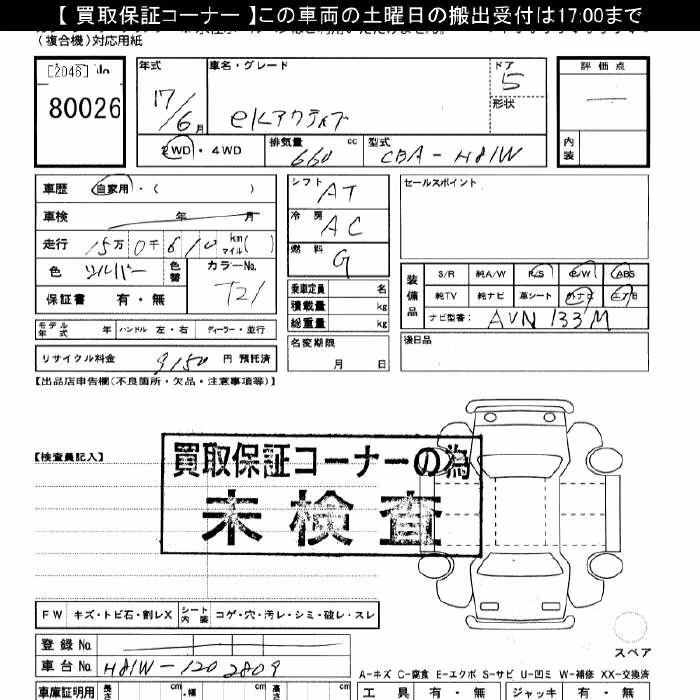 【 買取保証コーナー 】この車両の土曜日の搬出受付は17:00まで
(複合機)対応用紙
[2046] No
80026
年式 車名・グレード ドア 評価点
17/6月 eKアクティブ 5 —
形状
2WD・4WD 排気量 660 cc 型式 CBA-H81W 内装
車歴 自家用・( )
車検 年 月
走行 15万0千610 km マイル( )
色 シルバー 色替 カラーNo. T21
保証書 有・無
モデル年式 年 ハンドル 左・右 ディーラー・並行
リサイクル料金 9150 円 預託済
シフト AT
冷房 AC
燃料 G
乗車定員 名
積載量 kg
総重量 kg
名変期限 月 日
セールスポイント
装備品 S/R 純A/W P/S P/W ABS
純TV 純ナビ 革シート 外ナビ ETB
ナビ型番: AVN 133M
後日品
【出品店申告欄(不良箇所・欠品・注意事項等)】
【検査員記入】
買取保証コーナーの為
未検査
FW キズ・トビ石・割レX シート内装 コゲ・穴・汚レ・シミ・破レ・スレ
登録No.
車台No. H81W-1202809
スペア
A-キズ C-腐食 E-エクボ S-サビ U-凹ミ W-補修 XX-交換済
車庫証明用 長さ cm・幅 cm 高さ cm
工具 有・無 ジャッキ 有・無